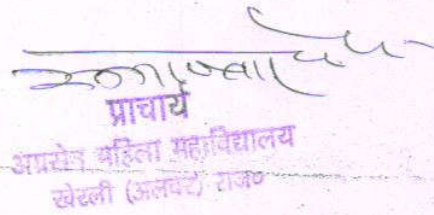 प्राचार्य
अग्रसेन महिला महाविद्यालय
खेरली (अलवर) राज०